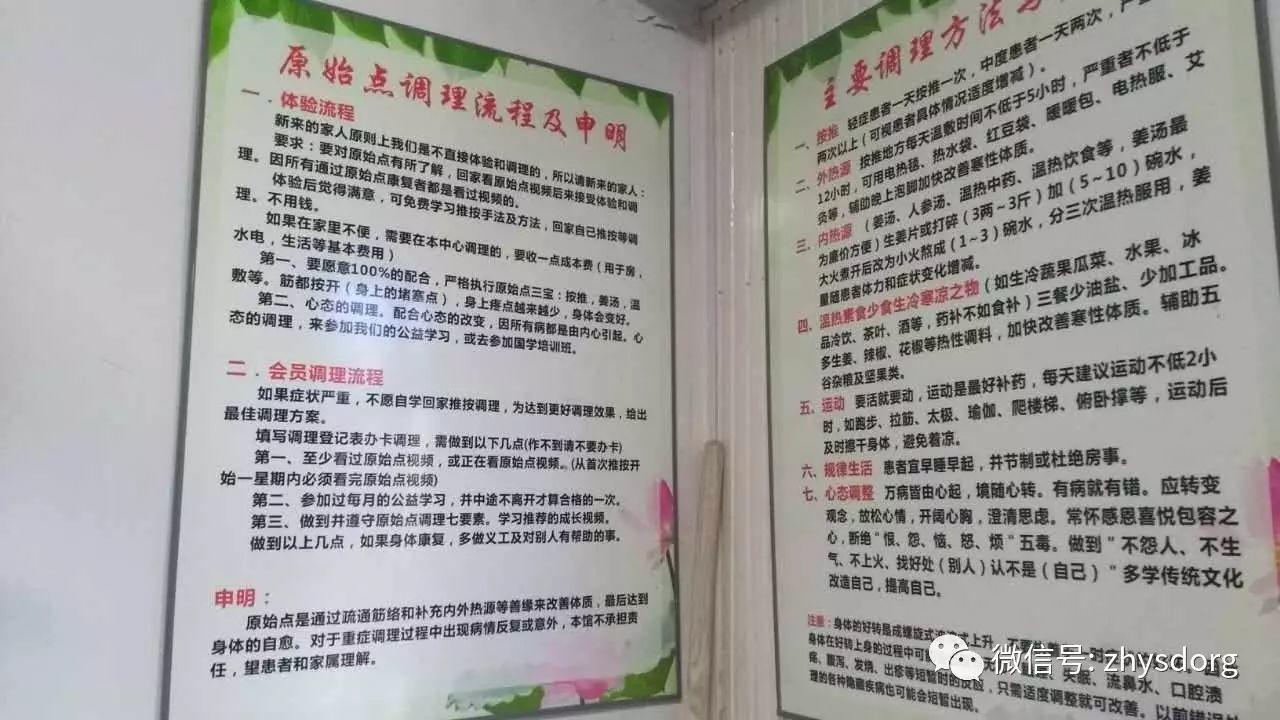 原始点调理流程及申明
一．体验流程
新来的家人原则上我们是不直接体验和调理的，所以请新来的家人：
要求：要对原始点有所了解，回家看原始点视频后来接受体验和调
理。因所有通过原始点康复者都是看过视频的。
体验后觉得满意，可免费学习推按手法及方法，回家自己推按等调
理。不用钱。
如果在家里不便，需要在本中心调理的，要收一点成本费（用于房，
水电，生活等基本费用）
第一、要愿意100%的配合，严格执行原始点三宝：按推，姜汤，温
敷等。筋都按开（身上的堵塞点），身上疼点越来越少，身体会变好。
第二、心态的调理。配合心态的改变，因所有病都是由内心引起。心
态的调理，来参加我们的公益学习，或去参加国学培训班。
二．会员调理流程
如果症状严重，不愿自学回家推按调理，为达到更好调理效果，给出
最佳调理方案。
填写调理登记表办卡调理，需做到以下几点(作不到请不要办卡)
第一、至少看过原始点视频，或正在看原始点视频。(从首次推按开
始一星期内必须看完原始点视频)
第二、参加过每月的公益学习，并中途不离开才算合格的一次。
第三、做到并遵守原始点调理七要素。学习推荐的成长视频。
做到以上几点，如果身体康复，多做义工及对别人有帮助的事。
申明：
原始点是通过疏通筋络和补充内外热源等善缘来改善体质，最后达到
身体的自愈。对于重症调理过程中出现病情反复或意外，本馆不承担责
任，望患者和家属理解。
主要调理方法与
一、按推 轻症患者一天按推一次，中度患者一天两次，严重
两次以上（可视患者具体情况适度增减）。
二、外热源 按推地方每天温敷时间不低于5小时，严重者不低于
12小时，可用电热毯、热水袋、红豆袋、暖暖包、电热服、艾
灸等，辅助晚上泡脚加快改善寒性体质。
三、内热源 （姜汤、人参汤、温热中药、温热饮食等，姜汤最
为廉价方便）生姜片或打碎（3两～3斤）加（5～10）碗水，
大火煮开后改为小火熬成（1～3）碗水，分三次温热服用，姜
量随患者体力和症状变化增减。
四、温热素食少食生冷寒凉之物（如生冷蔬果瓜菜、水果、冰
品冷饮、茶叶、酒等，药补不如食补）三餐少油盐、少加工品。
多生姜、辣椒、花椒等热性调料，加快改善寒性体质。辅助五
谷杂粮及坚果类。
五、运动 要活就要动，运动是最好补药，每天建议运动不低2小
时，如跑步、拉筋、太极、瑜伽、爬楼梯、俯卧撑等，运动后
及时擦干身体，避免着凉。
六、规律生活 患者宜早睡早起，并节制或杜绝房事。
七、心态调整 万病皆由心起，境随心转。有病就有错。应转变
观念，放松心情，开阔心胸，澄清思虑。常怀感恩喜悦包容之
心，断绝"恨、怨、恼、怒、烦"五毒。做到"不怨人、不生
气、不上火、找好处（别人）认不是（自己）"多学传统文化
改造自己，提高自己。
注意：身体的好转是成螺旋式
身体在好转上身的过程中可 失眠、流鼻水、口腔溃
疡、腹泻、发烧、出疹等短暂时的反应，只需适度调整就可改善。以前错误处
理的各种隐藏疾病也可能会短暂出现。
微信号: zhysdorg